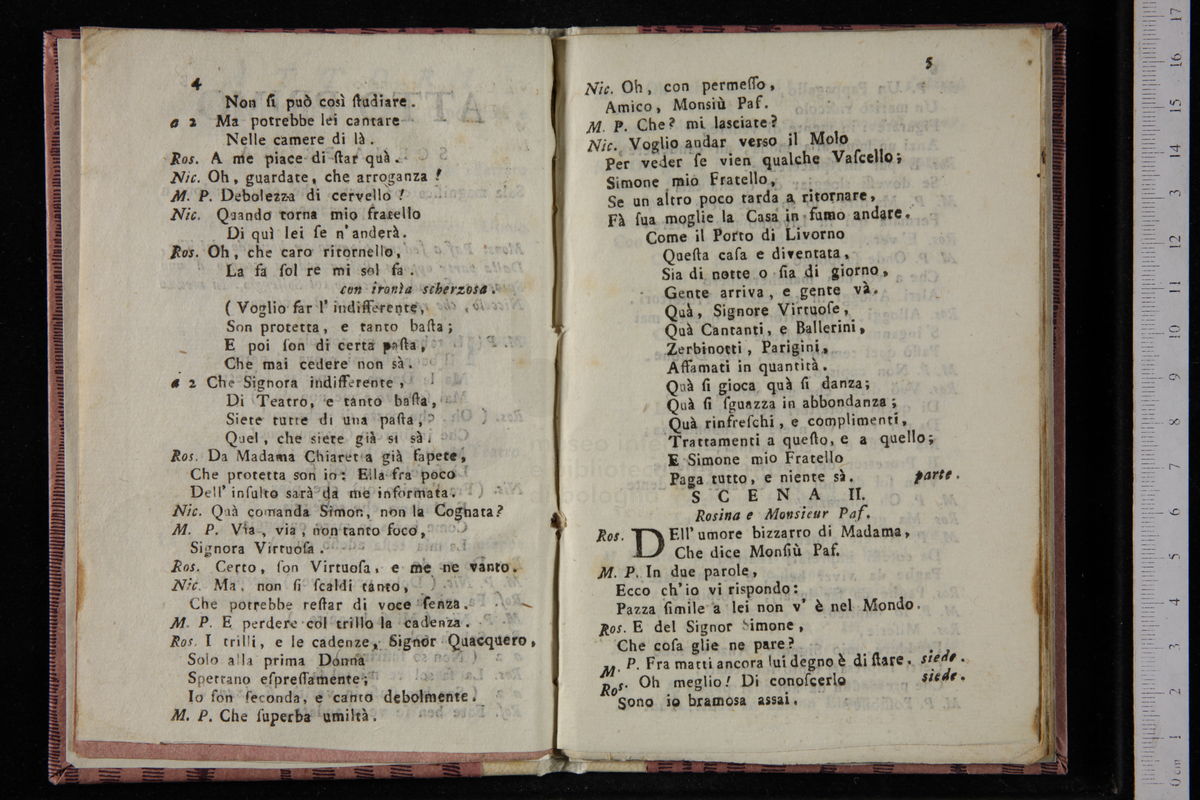 4
Non ſi può così ſtudiare.
a 2 Ma potrebbe lei cantare
Nelle camere di là.
Ros. A me piace di ſtar quà.
Nic. Oh, guardate, che arroganza!
M. P. Debolezza di cervello!
Nic. Quando torna mio fratello
Di quì lei ſe n'anderà.
Ros. Oh, che caro ritornello,
La fa ſol re mi sol fa.
con ironìa scherzosa.
(Voglio far l'indifferente,
Son protetta, e tanto baſta;
E poi ſon di certa paſta,
Che mai cedere non sà.
a 2 Che Signora indifferente,
Di Teatro, e tanto baſta,
Siete tutte di una paſta,
Quel, che siete già si sà.
Ros. Da Madama Chiaretta già ſapete,
Che protetta son io: Ella fra poco
Dell' inſulto sarà da me informata.
Nic. Quà comanda Simon, non la Cognata?
M. P. Via, via, non tanto foco,
Signora Virtuoſa.
Ros. Certo, ſon Virtuoſa, e me ne vanto.
Nic. Ma, non ſi ſcaldi tanto,
Che potrebbe reſtar di voce ſenza.
M. P. E perdere col trillo la cadenza.
Ros. I trilli, e le cadenze, Signor Quacquero,
Solo alla prima Donna
Spettano eſpreſſamente;
Io ſon ſeconda, e canto debolmente.
M. P. Che ſuperba umiltà.
5
Nic. Oh, con permeſſo,
Amico, Monsiù Paf.
M. P. Che? mi lasciate?
Nic. Voglio andar verso il Molo
Per veder ſe vien qualche Vaſcello;
Simone mio Fratello,
Se un altro poco tarda a ritornare,
Fà ſua moglie la Casa in fumo andare.
Come il Porto di Livorno
Queſta caſa e diventata,
Sia di notte o ſia di giorno,
Gente arriva, e gente và.
Quà, Signore Virtuoſe,
Quà Cantanti, e Ballerini,
Zerbinotti, Parigini,
Affamati in quantità.
Quà ſi gioca quà ſi danza;
Quà ſi ſguazza in abbondanza;
Quà rinfreſchi, e complimenti,
Trattamenti a queſto, e a quello;
E Simone mio Fratello
Paga tutto, e niente sà. parte.
SCENA II.
Rosina e Monsieur Paf.
Ros. DEll' umore bizzarro di Madama,
Che dice Monſiù Paf.
M. P. In due parole,
Ecco ch'io vi rispondo:
Pazza ſimile a lei non v' è nel Mondo.
Ros. E del Signor Simone,
Che coſa glie ne pare?
M. P. Fra matti ancora lui degno è di ſtare. siede.
Ros. Oh meglio! Di conoſcerlo siede.
Sono io bramosa assai.